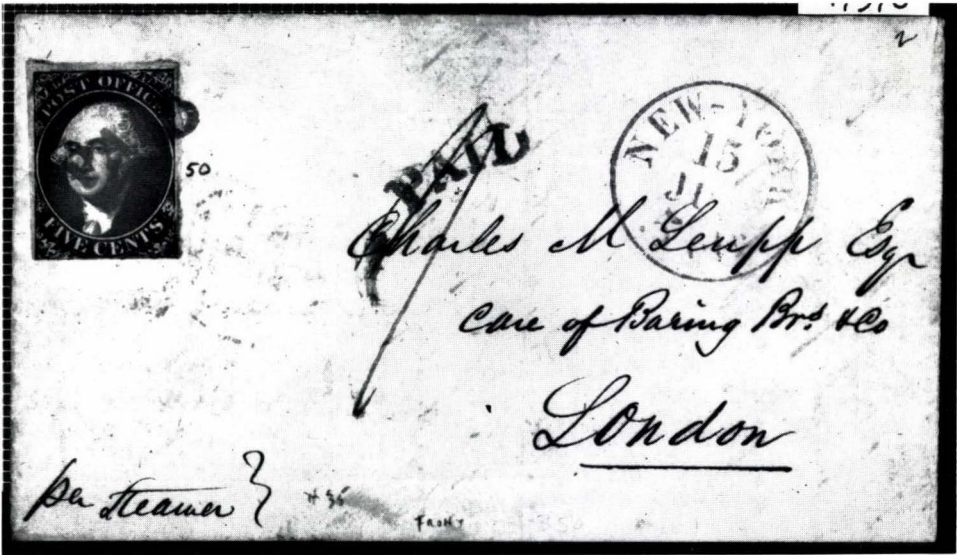 POST OFFICE
FIVE CENTS
50
PAID
NEW-YORK
15
Charles M Leupp Esqr
care of Baring Brs & Co
London
per Steamer
FRONT